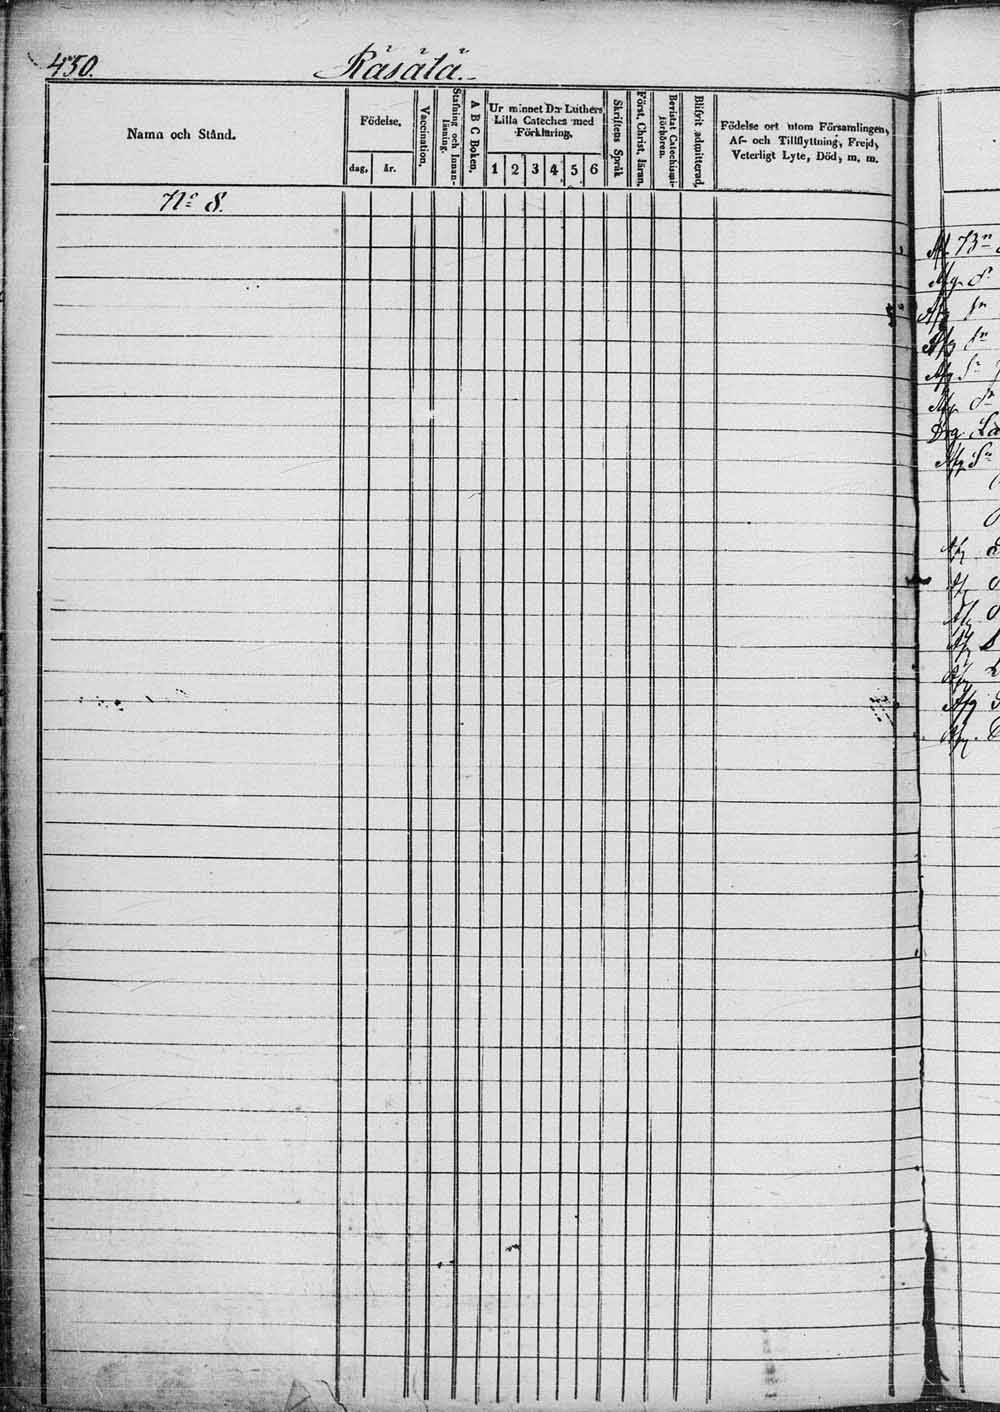 450. Räsälä.
Namn och Stånd.
Födelse,
dag, år.
Vaccination,
Stafning och Innan-
läsning.
A B C Boken,
Ur minnet D:r Luthers
Lilla Cateches med
Förklaring.
1 2 3 4 5 6
Skriftens Språk
Först. Christ. läran.
Bevistat Catechismi-
förhören.
Blifvit admitterad.
Födelse ort utom Församlingen,
Af- och Tillflyttning, Frejd,
Veterligt Lyte, Död, m. m.
No 8.